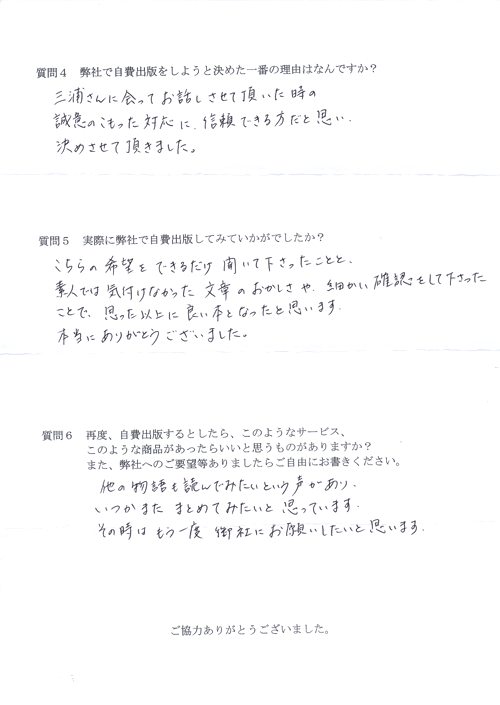 質問４　弊社で自費出版をしようと決めた一番の理由はなんですか？
三浦さんに会ってお話しさせて頂いた時の
誠意のこもった対応に、信頼できる方だと思い、
決めさせて頂きました。
質問５　実際に弊社で自費出版してみていかがでしたか？
こちらの希望をできるだけ聞いて下さったことと、
素人では気付けなかった文章のおかしさや、細かい確認をして下さった
ことで、思った以上に良い本となったと思います。
本当にありがとうございました。
質問６　再度、自費出版するとしたら、このようなサービス、
このような商品があったらいいと思うものがありますか？
また、弊社へのご要望等ありましたらご自由にお書きください。
他の物語も読んでみたいという声があり、
いつかまた まとめてみたいと思っています。
その時はもう一度 御社にお願いしたいと思います。
ご協力ありがとうございました。